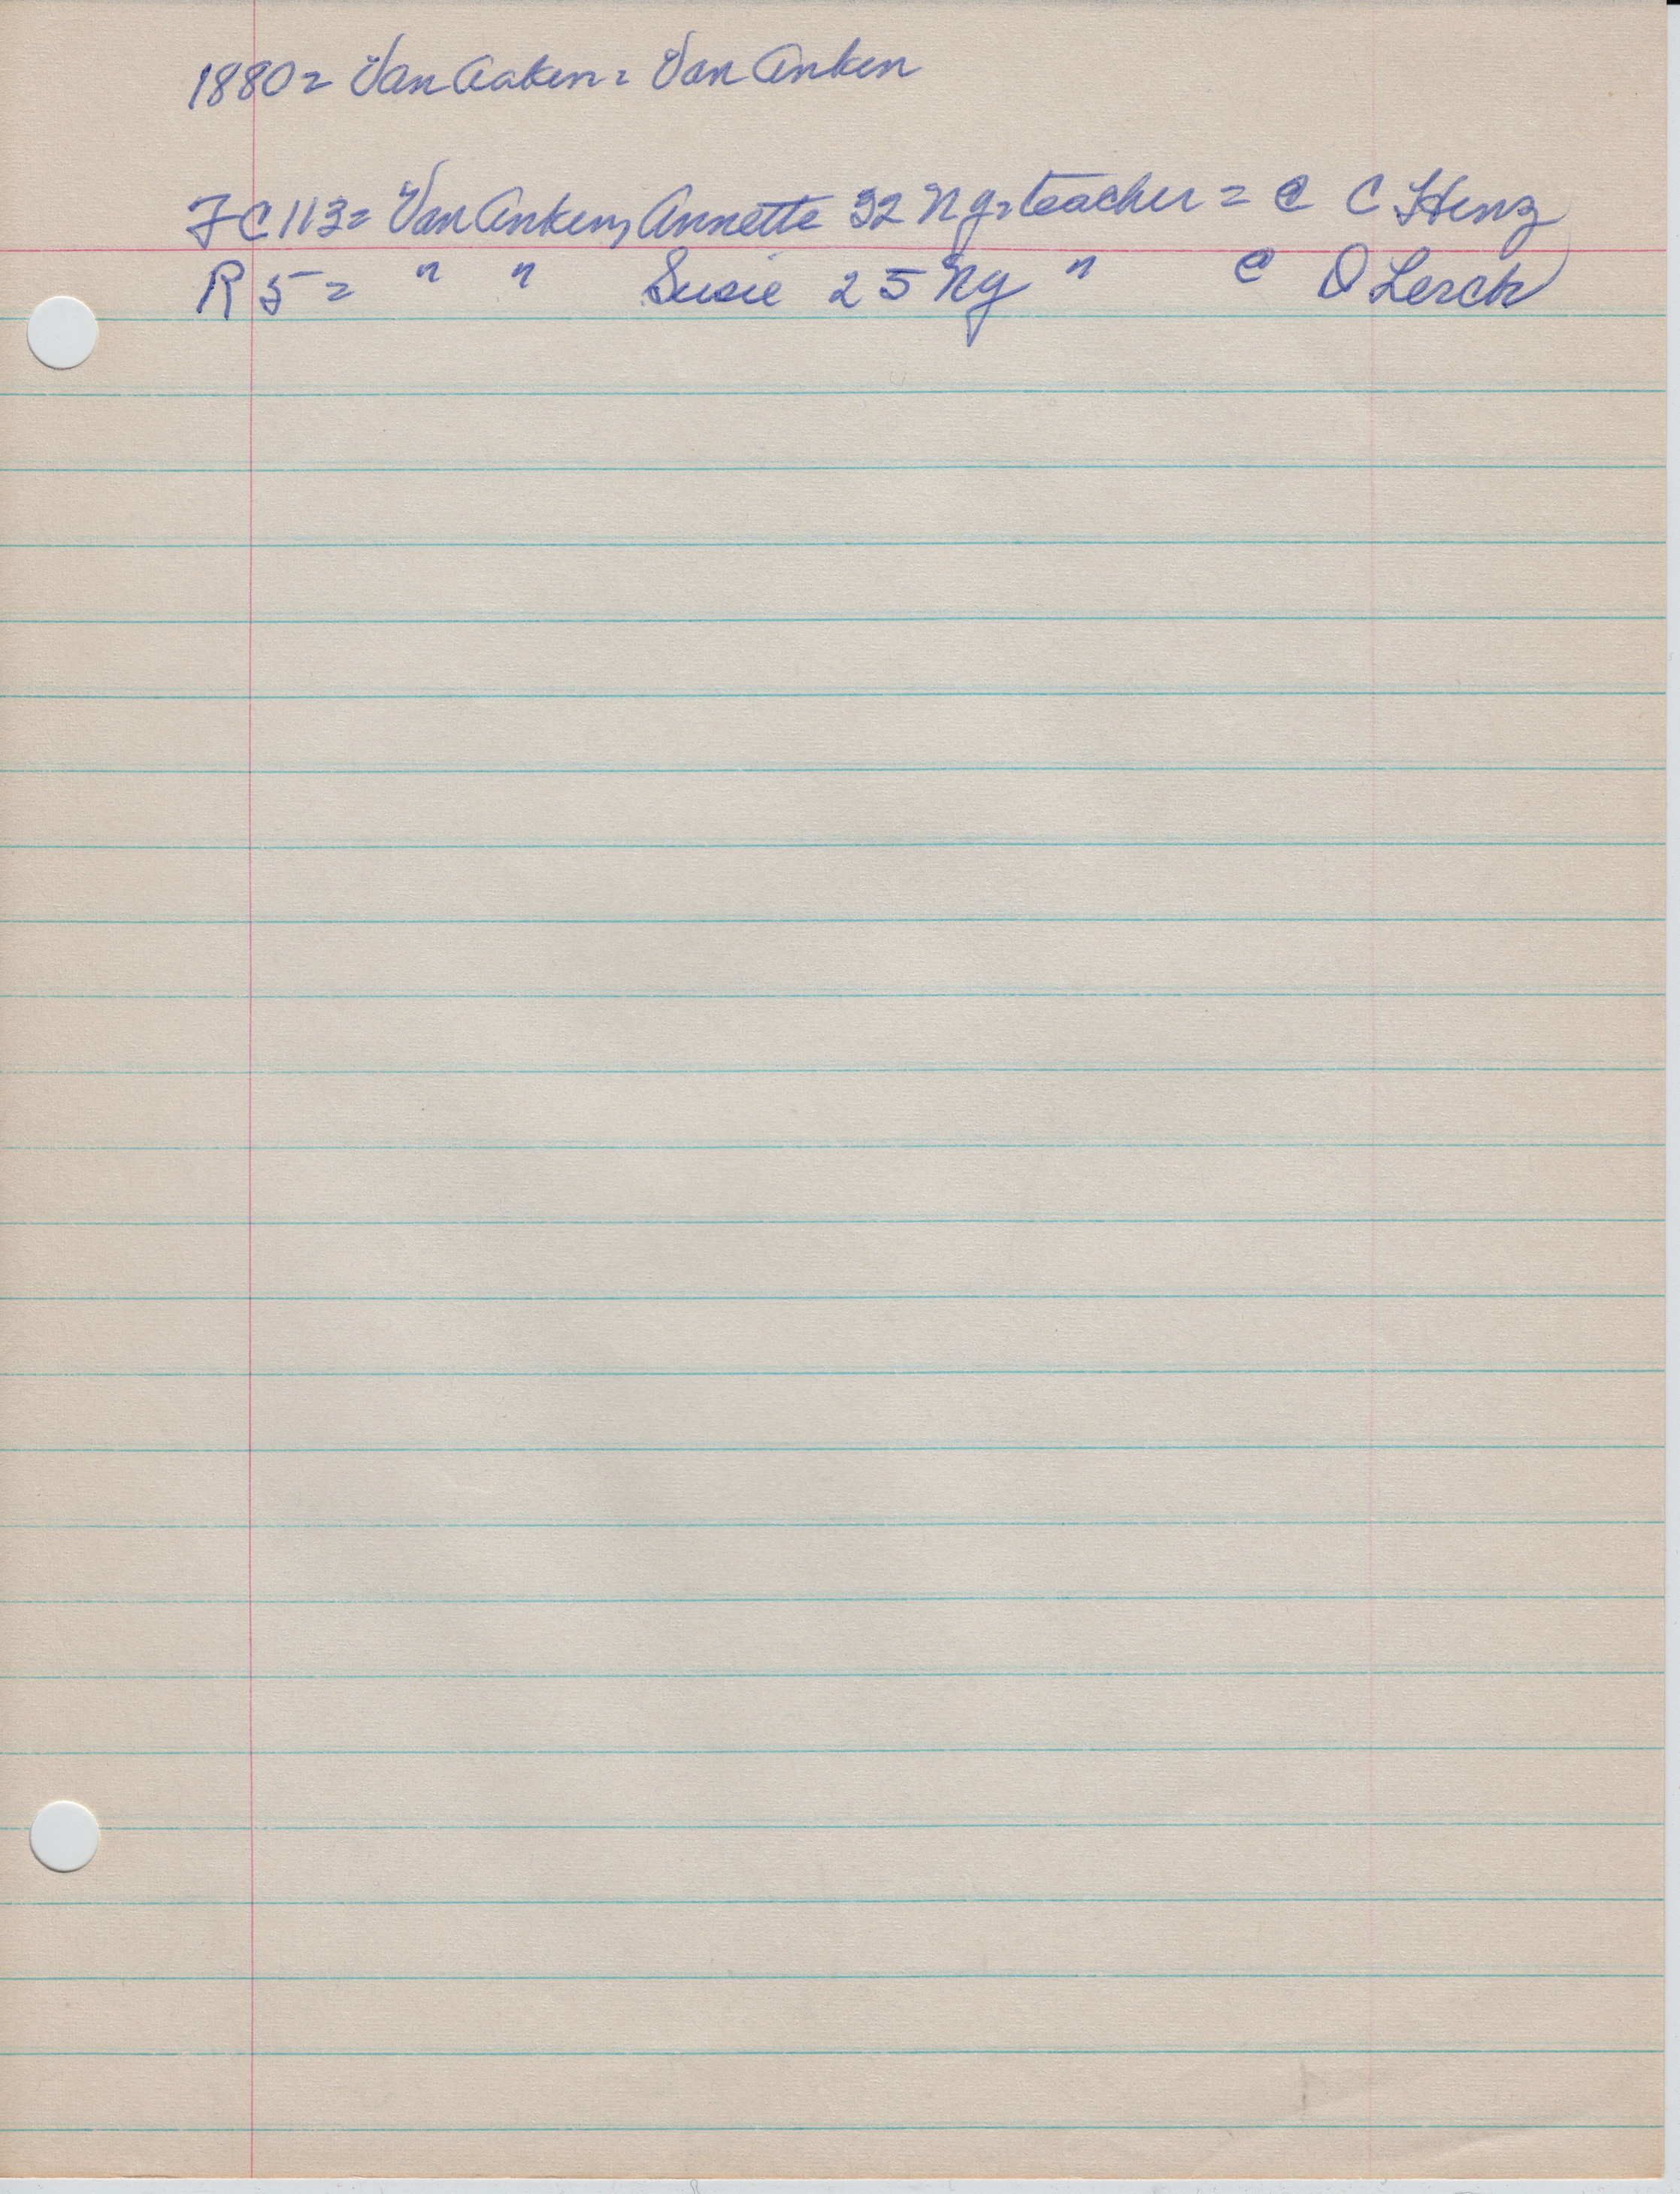 1880= Van Aaken = Van Anken
FC113= Van Anken, Annette 32 Ng = teacher = @ C Henz
R5= " " Susie 25 Ng " @ D Lerch